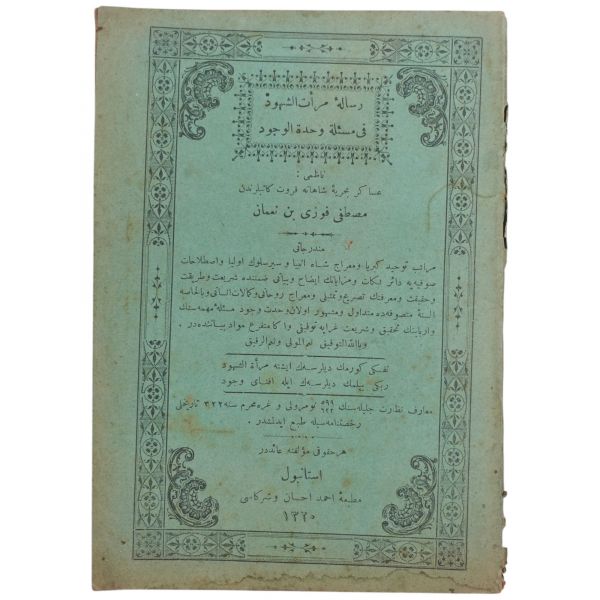 رسالهٔ مرآت الشهود
فی مسئلة وحدة الوجود
ناظمی :
عساکر بحریهٔ شاهانه فروت کاتبلرندن
مصطفی فوزی بن نعمان
مندرجاتی
مراتب توحید کبریا و معراج شاه انبیا و سیر سلوك اولیا و اصطلاحات
صوفیه یه دائر نکات و مزایانك ایضاح و بیانی ضمننده شریعت و طریقت
و حقیقت و معرفتك تصریح و تمثیلی و معراج روحانی و کمالات انسانی و بالخاصه
السنهٔ متصوفه ده متداول و مشهور اولان وحدت وجود مسئلهٔ مهمه سنك
و اربابنك تحقیق و شریعت غرایه توفیقی و اکا متفرع مواد بیاننده در .
وبالله التوفیق نعم المولی ونعم الرفیق
نفسکی کورمك دیلرسه ك ایشته مرآة الشهود
ربکی بیلمك دیلرسه ك ایله افنای وجود
معارف نظارت جلیله سنك ٥٩٩ ٢٢٢ نومرولی و غره محرم سنه ٣٢٢ تاریخلی
رخصتنامه سیله طبع ایدلمشدر .
هر حقوقی مؤلفنه عائددر
استانبول
مطبعهٔ احمد احسان و شرکاسی
١٣٢٠